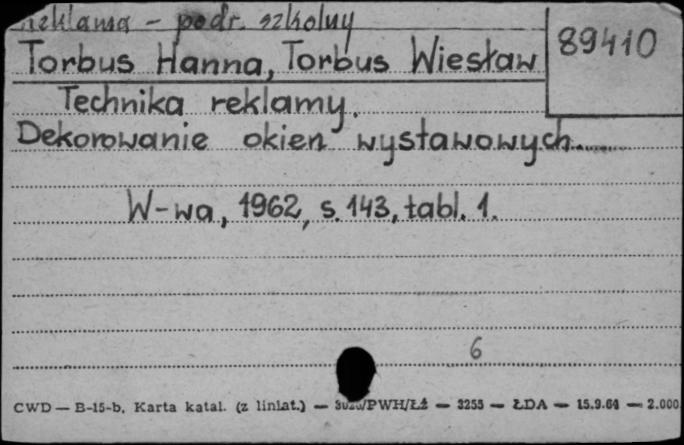 reklama - podr. szkolny
89410
Torbus Hanna, Torbus Wiesław
Technika reklamy.
Dekorowanie okien wystawowych.
W-wa, 1962, s. 143, tabl. 1.
6
CWD — B-15-b. Karta katal. (z liniat.) — /PWH/ŁŻ — 3255 — ŁDA — 15.9.64 — 2.000